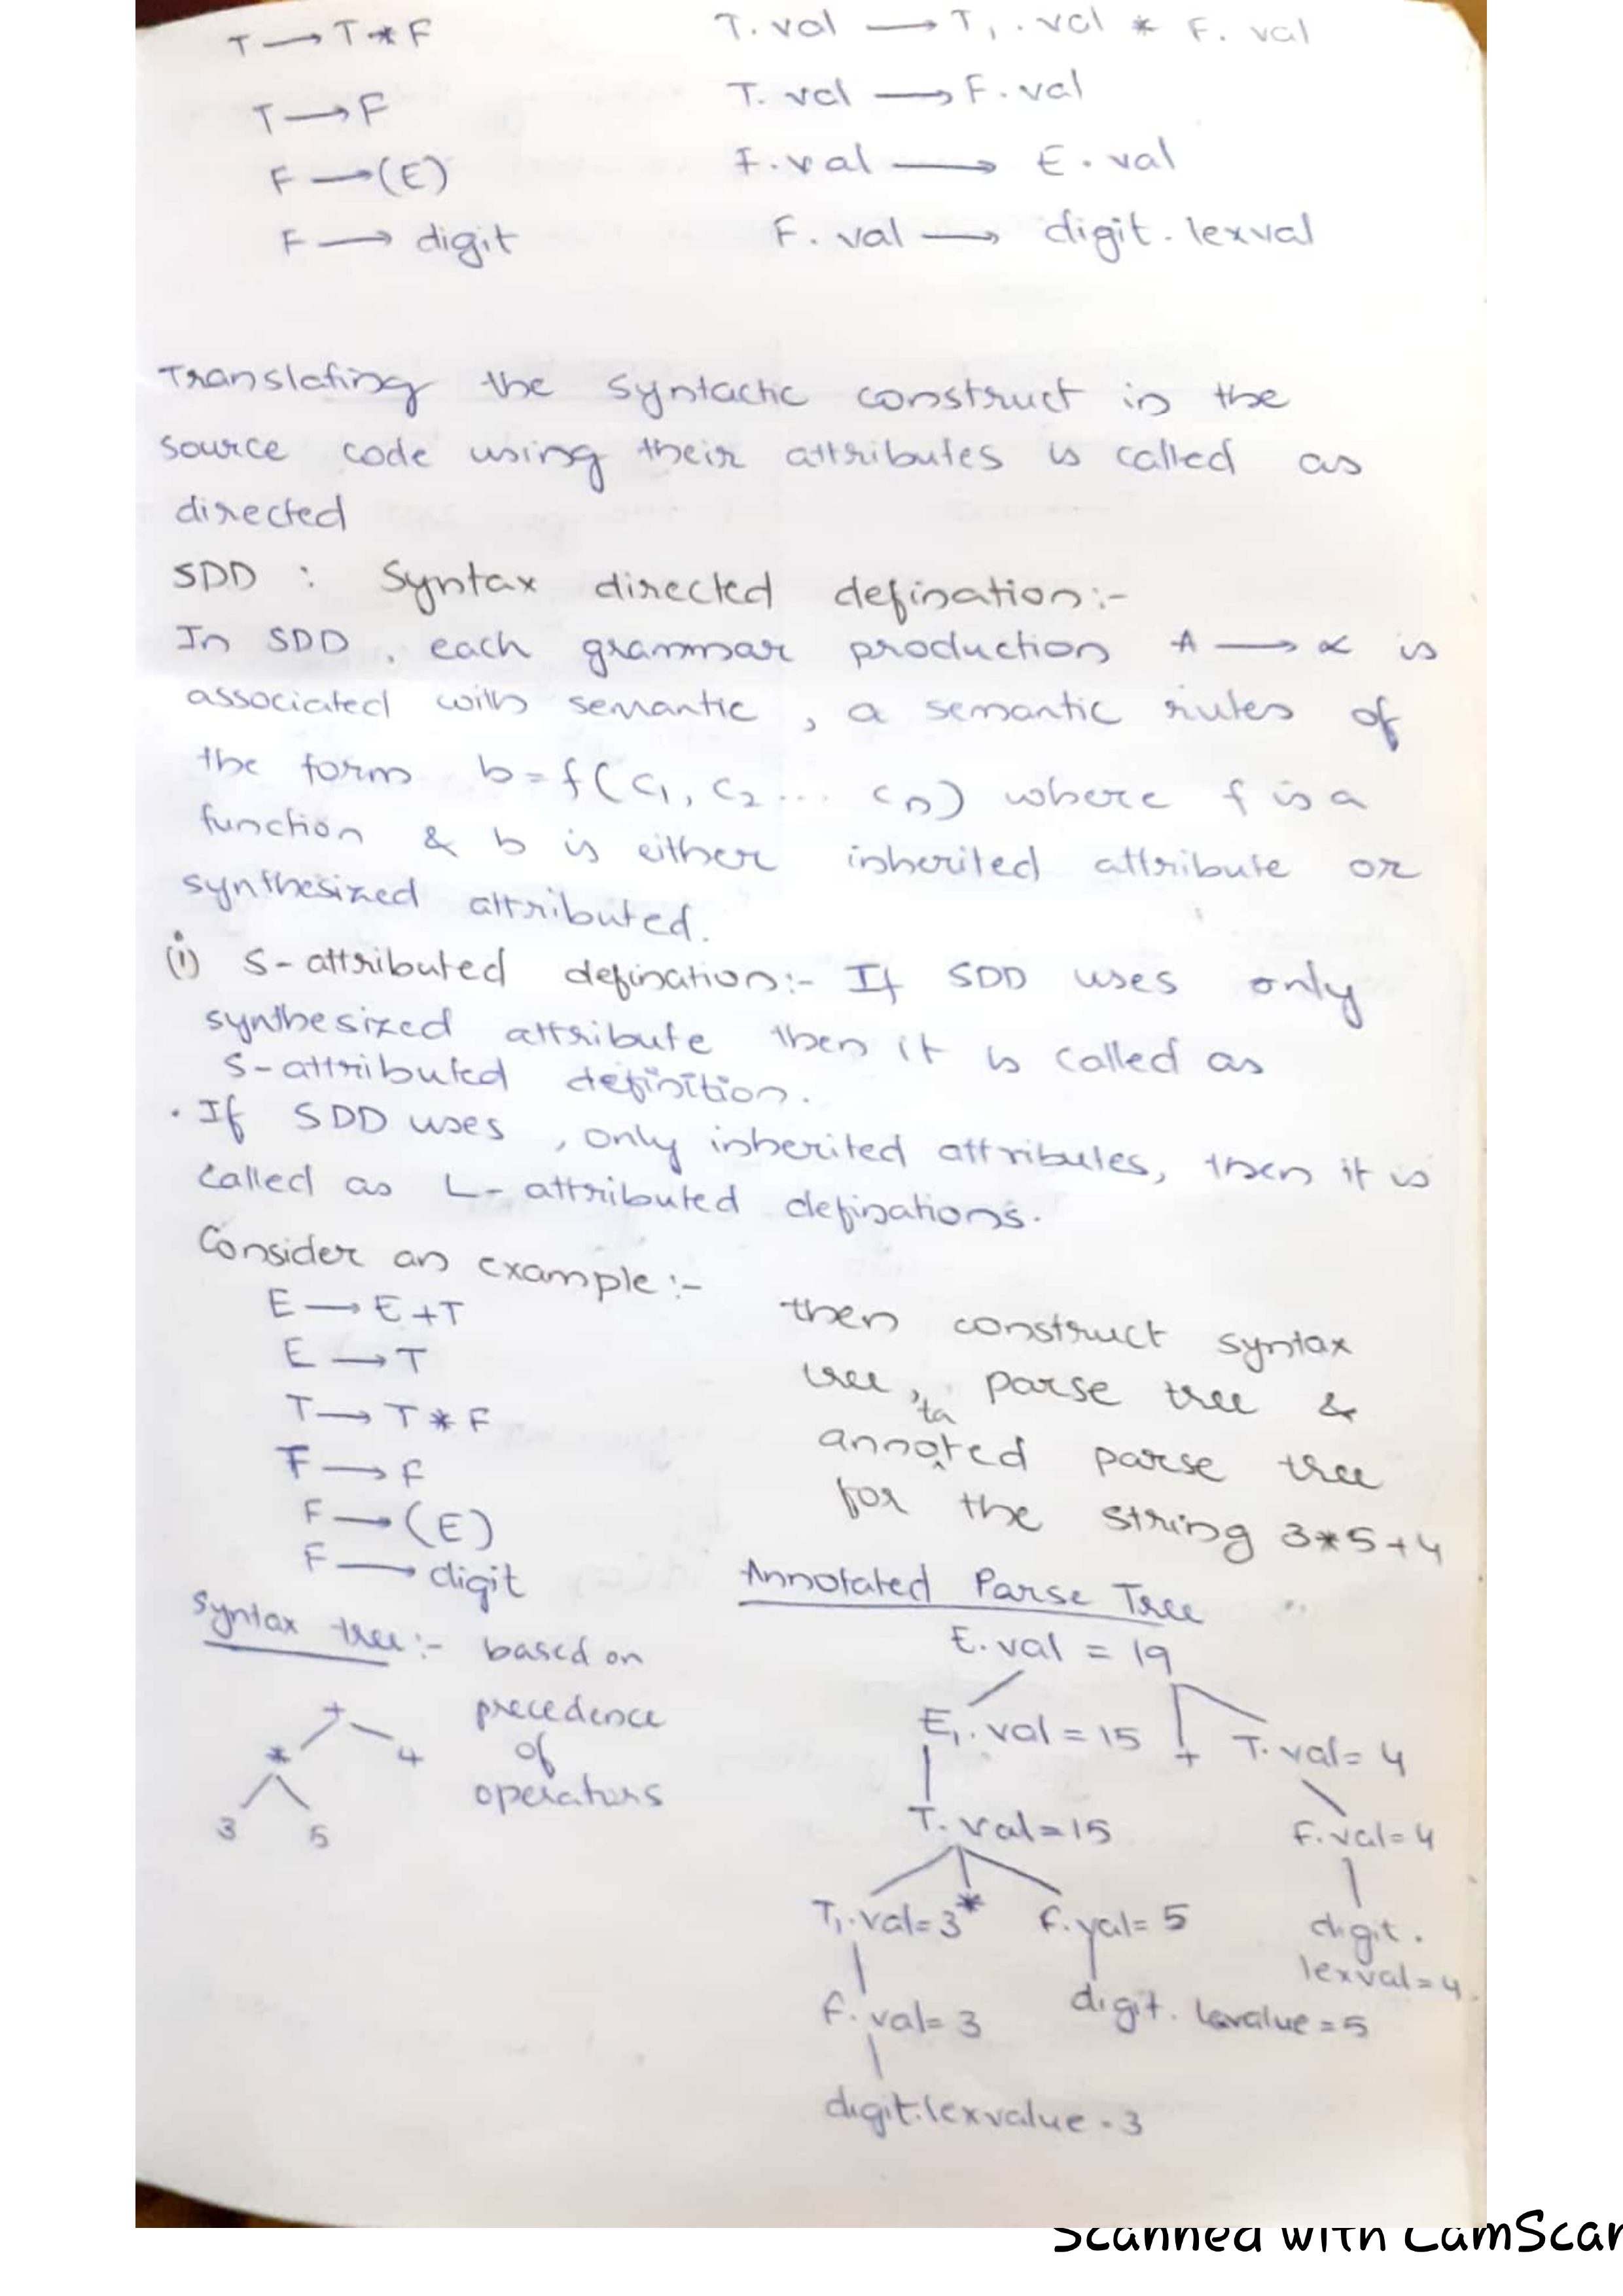 T → T * F    T. val → T₁ . val * F. val
T → F    T. val → F. val
F → (E)    F. val → E . val
F → digit    F. val → digit. lexval
Translating the syntactic construct in the
source code using their attributes is called as
directed
SDD : Syntax directed defination:-
In SDD, each grammar production A → ∝ is
associated with semantic , a semantic rules of
the form b = f( c₁, c₂ ... cn) where f is a
function & b is either inherited attribute or
synthesized attributed.
(i) S-attributed defination:- If SDD uses only
synthesized attribute then it is called as
S-attributed definition.
. If SDD uses , only inherited attributes, then it is
called as L-attributed definations.
Consider an example :-
E → E + T
E → T
T → T * F
T → F
F → (E)
F → digit
then construct syntax
tree, parse tree &
annotated parse tree
for the string 3*5+4
Syntax tree :- based on
precedence
of
operators
+
* 4
3 5
Annotated Parse Tree
E. val = 19
E₁. val = 15 + T. val = 4
T. val = 15 F. val = 4
T₁. val = 3 * F. val = 5 digit .
lexval = 4
F. val = 3 digit. lexvalue = 5
digit.lexvalue = 3
Scanned with CamScan